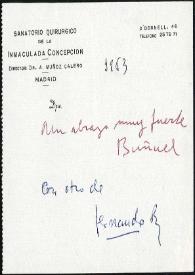 SANATORIO QUIRURGICO
DE LA
INMACULADA CONCEPCION
DIRECTOR: DR. A. MUÑOZ CALERO
MADRID
O'DONNELL, 46
TELEFONO
1963
Un abrazo muy fuerte
Buñuel
Con otro de
Fernando R